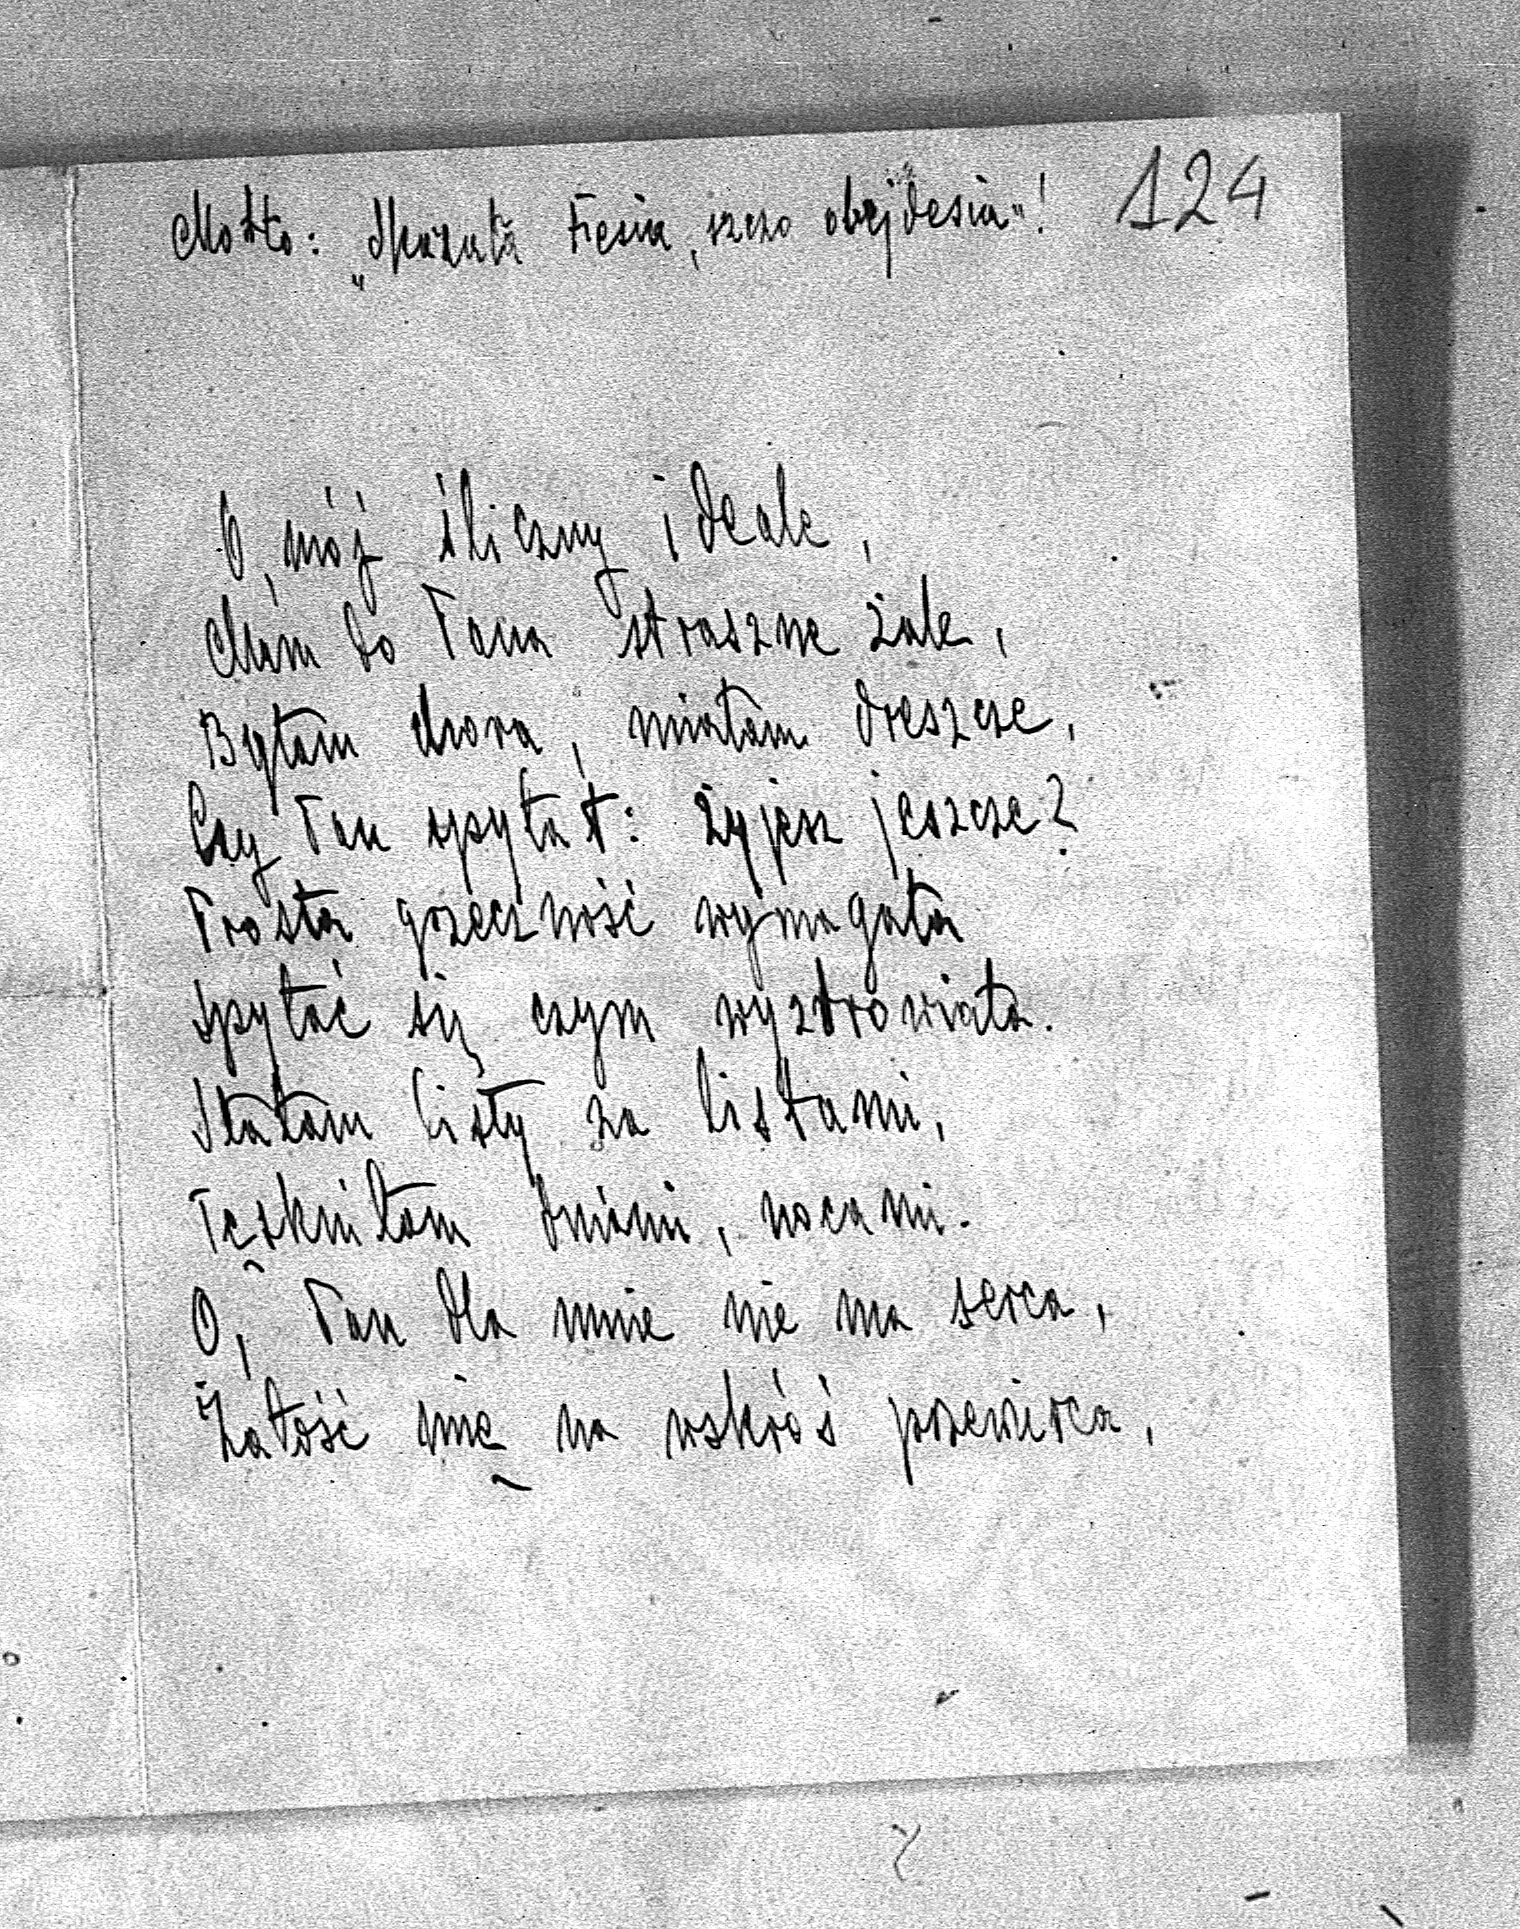 Motto: „Skazała Fesia, szczo obejdesia"! 124
O, mój śliczny ideale,
Mam do Pana straszne żale,
Byłam chora, miałam dreszcze,
Czy Pan spytał: żyjesz jeszcze?
Prosta grzeczność wymagała
Spytać się czym wyzdrowiała.
Słałam listy za listami,
Tęskniłam dniami, nocami.
O, Pan dla mnie nie ma serca,
Żałość mię na wskróś przewierca,